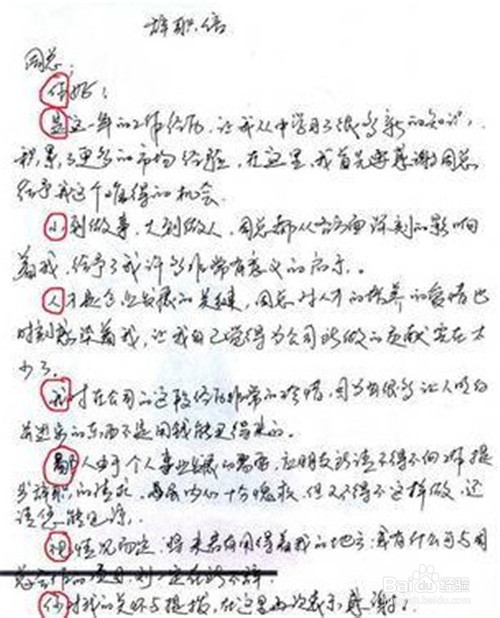 辞职信
周总:
你好:
是这一年的工作经历,让我从中学习了很多新的知识,
积累了更多的市场经验,在这里,我首先要感谢周总
给予我这个难得的机会.
小到做事,大到做人,周总都从各方面深刻的影响
着我,给予了我许多非常有意义的启示..
人才是企业发展的关键,周总对人才的培养的奋情也
时刻感染着我,让我自己觉得为公司所做的贡献实在太
少了.
我对在公司的这段经历非常的珍惜,因为有很多让人明白
的东西不是用钱能买得来的.
鄙人由于个人事业发展的需要,应朋友所请不得不向您提
出辞职的请求,内心十分愧疚,但又不得不这样做,还
请您能见谅.
视情况而定,将来若有用得着我的地方,或有什么可与周
你对我的关怀与提拔,在这里再次表示感谢!
Baidu经验